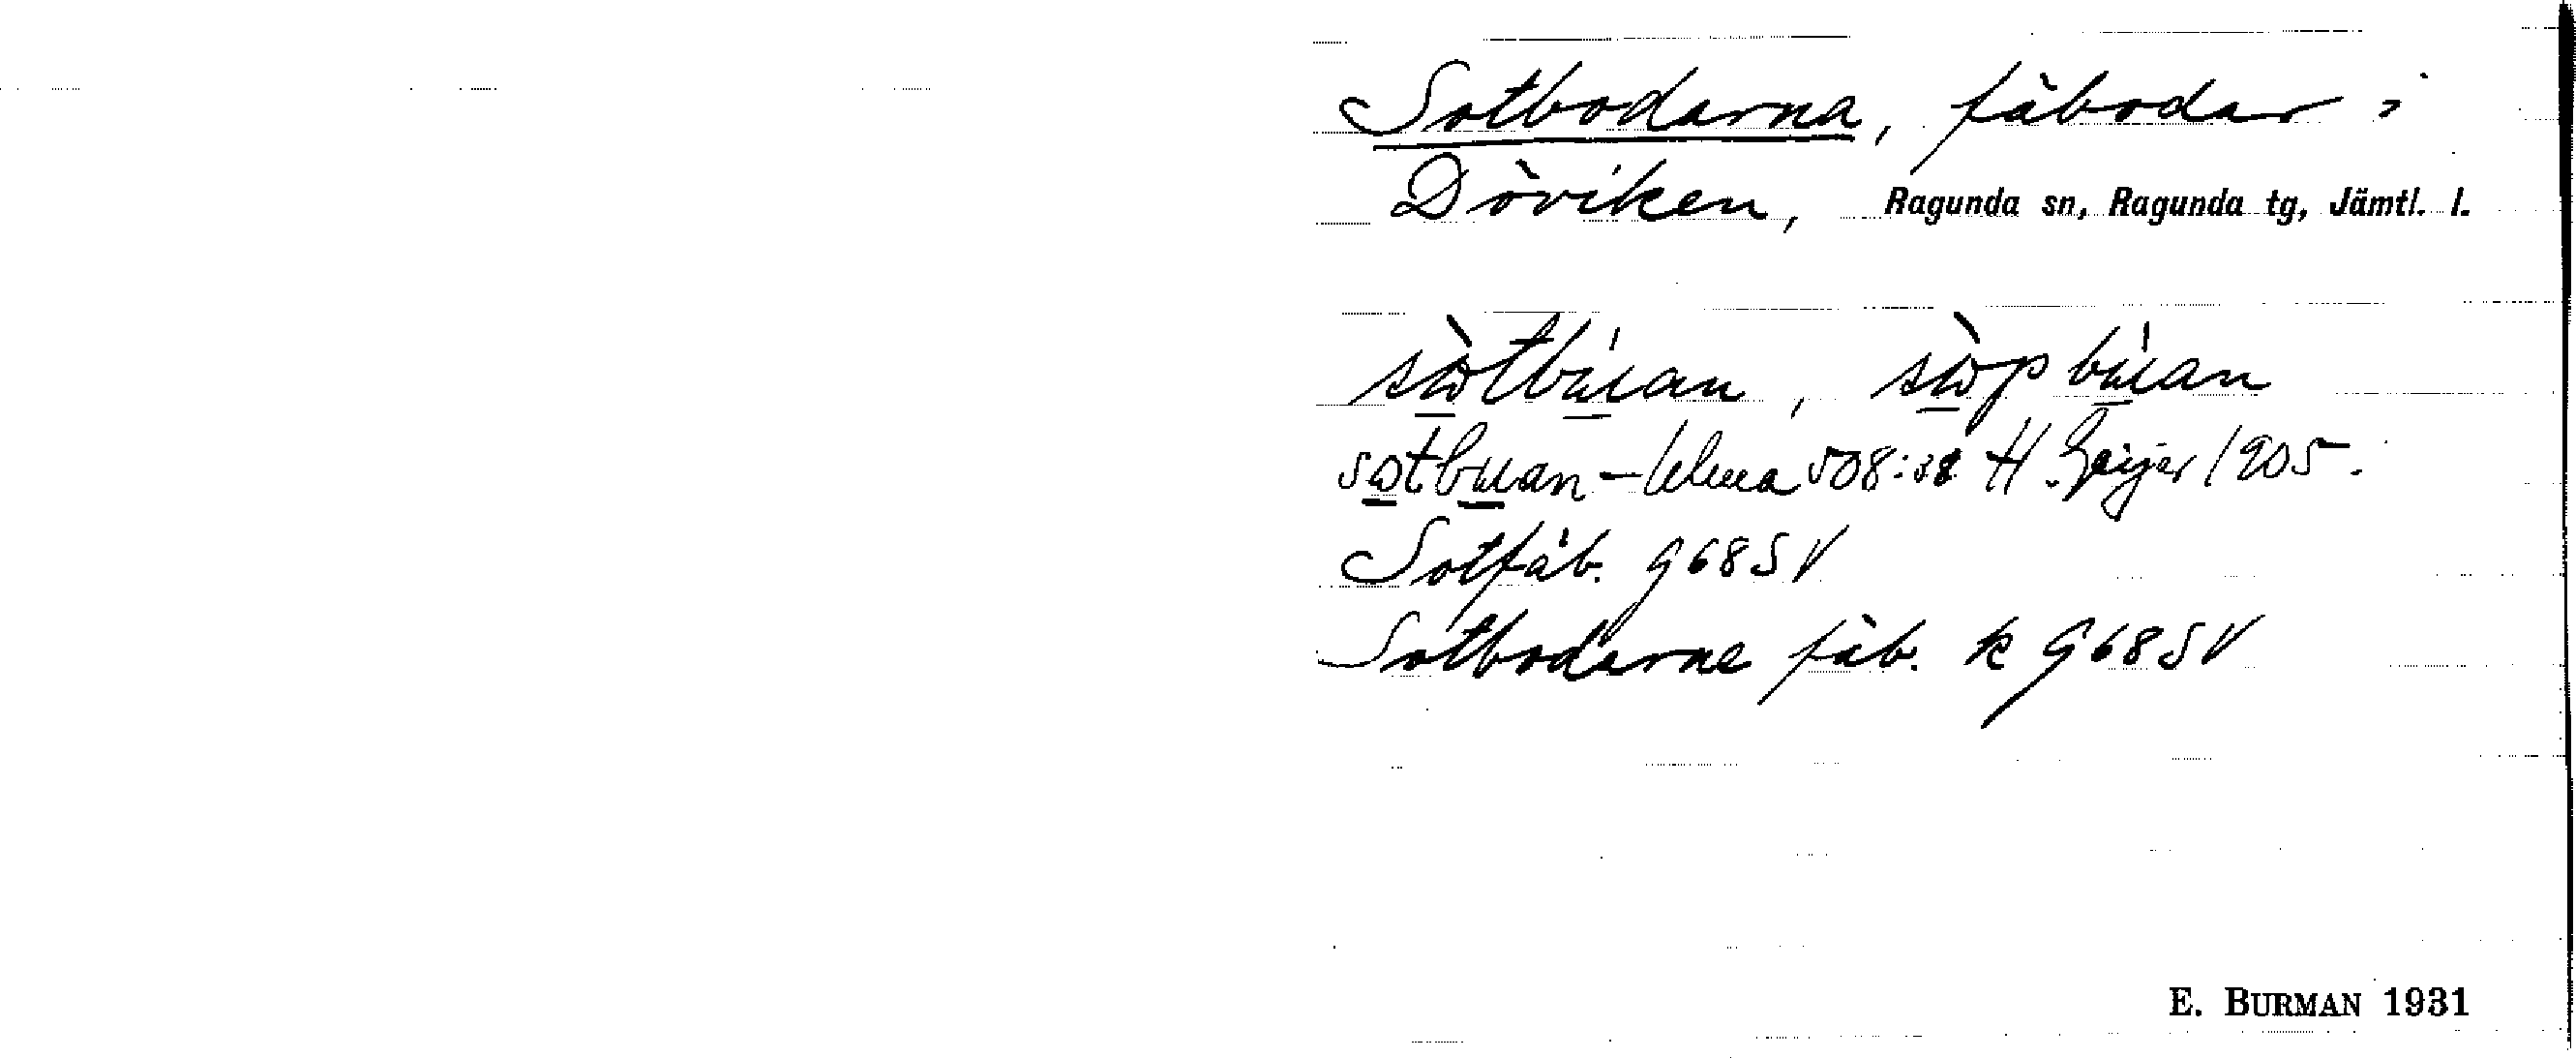 Sotbodarna, fäbodar i
Döviken, Ragunda sn, Ragunda tg, Jämtl. l.
sò̱tbú̱an, sò̱pbú̱an
so̱tbu̱an – Ulma 508:38 H. Geijer 1905.
Sotfäb. 968SV
Sotbodarne fäb. k 968SV
E. BURMAN 1931